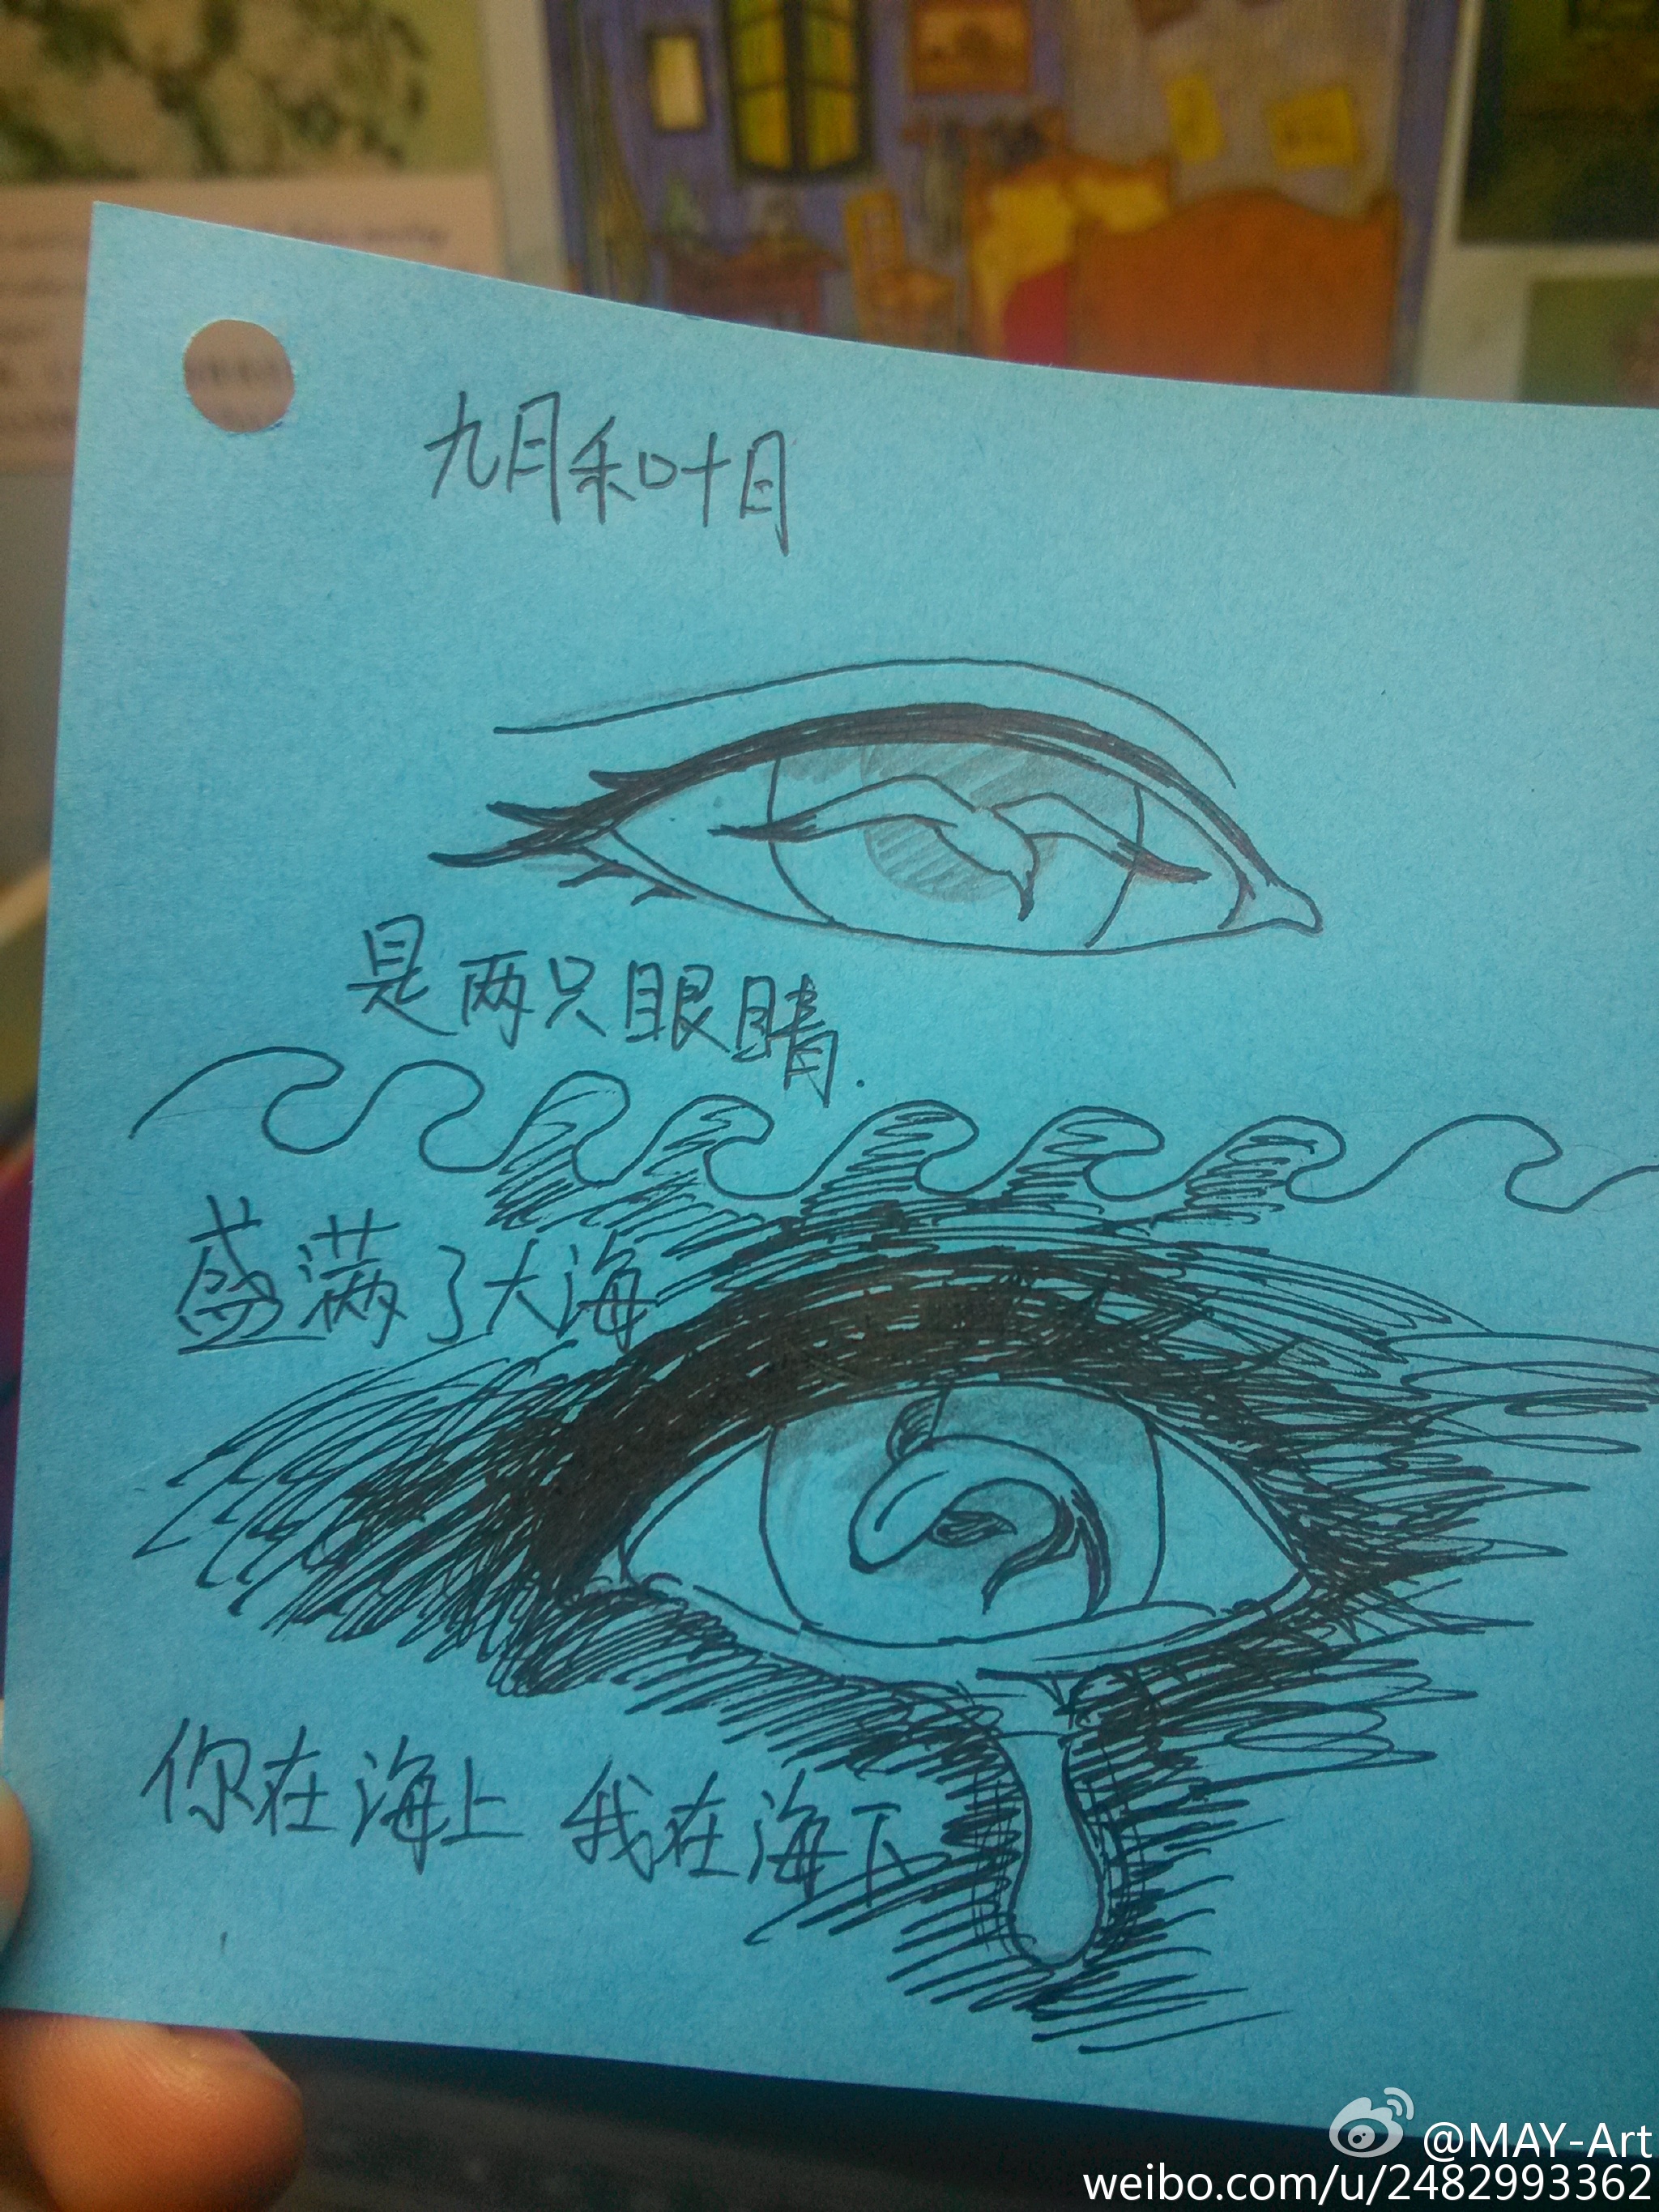 九月和叶月
是两只眼睛.
盛满了大海
你在海上 我在海下
@MAY-Art
weibo.com/u/2482993362